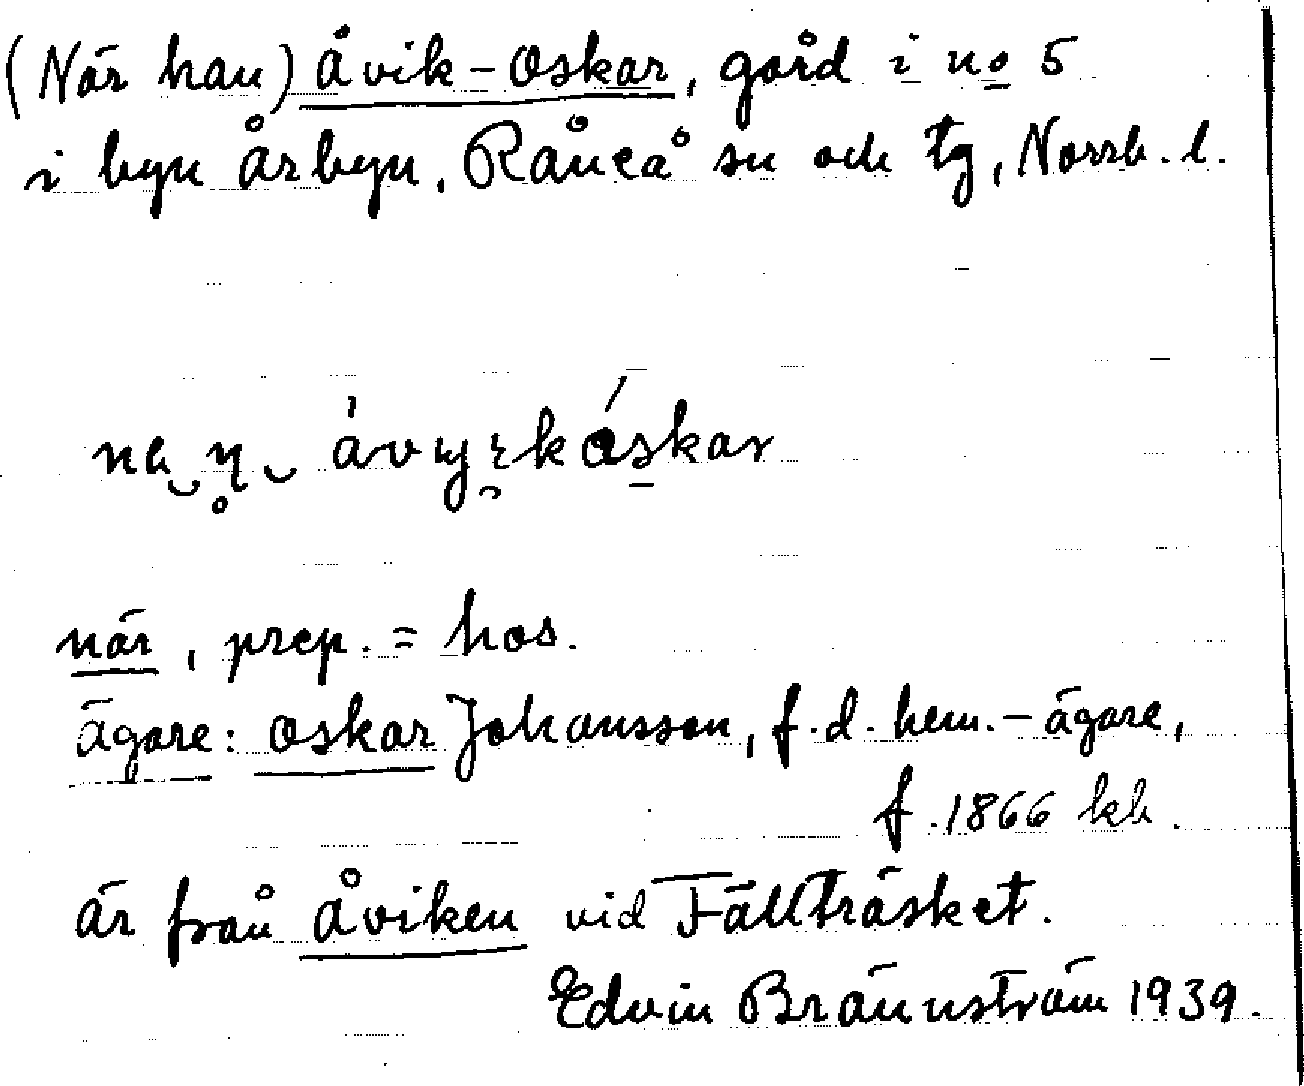 (När han) Åvik-Oskar, gård i no 5
i byn Årbyn, Råneå sn och tg, Norrb. l.
när, prep. = hos.
ägare: Oskar Johansson, f.d. hem.-ägare,
f. 1866 kb.
är från Åviken vid Fällträsket.
Edvin Brännström 1939.